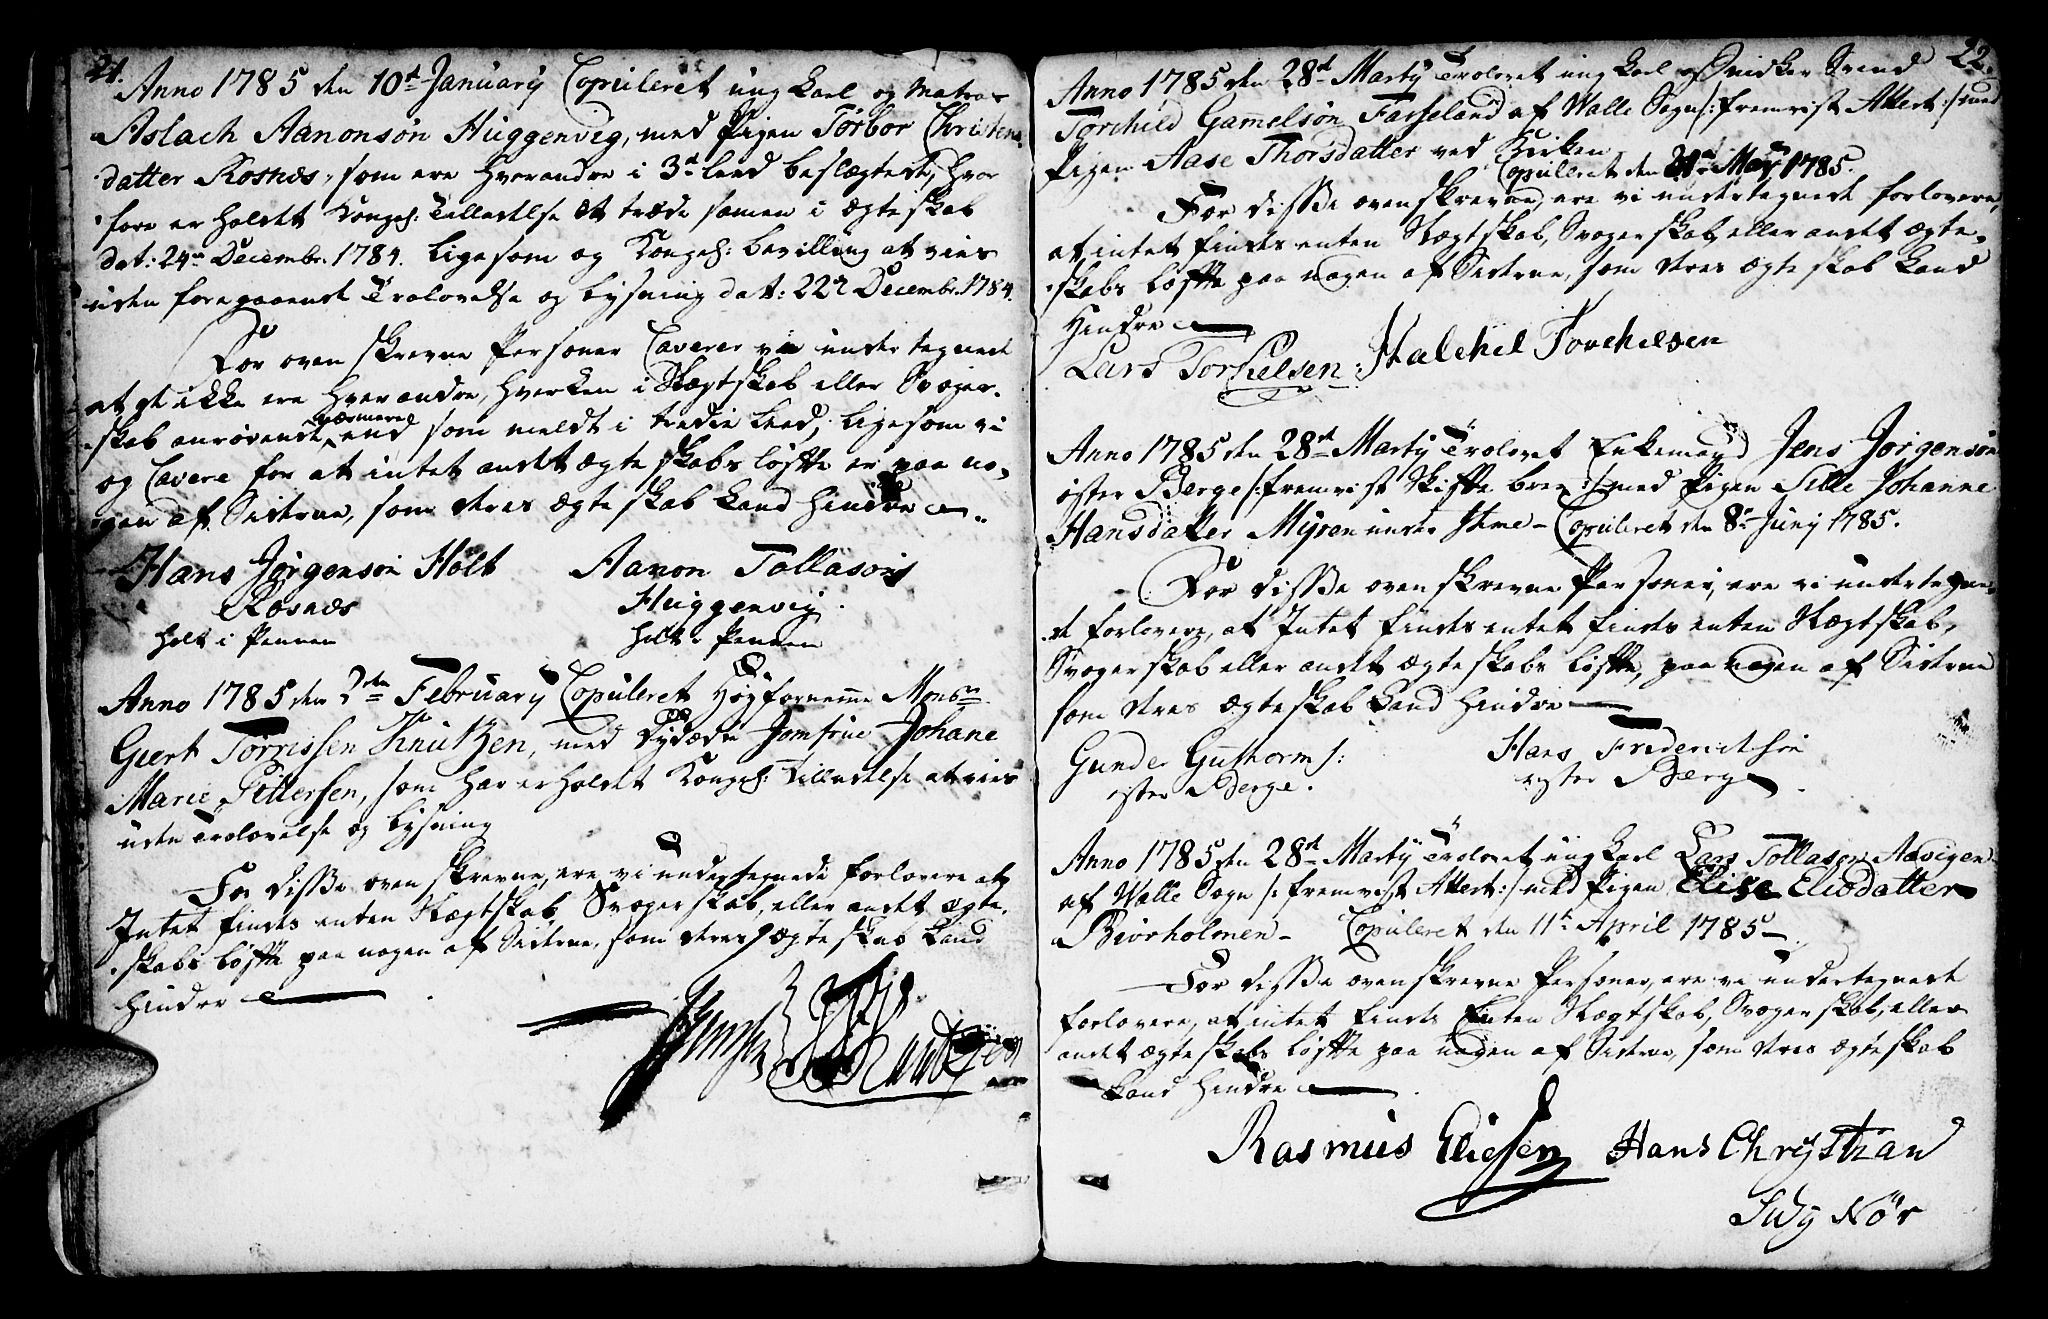 21.
Anno 1785 den 10de January Copuleret ung Karl og Matros
Aslach Aanonsøn Huggenvig, med Pigen Torbor Christens
datter Rosnæs, som ere hverandre i 3de leed beslægtede, hvor
fore er holdet Kongel: Tilladelse at træde samen i ægteskab
dat: 24de Decembr. 1784. ligesom og Kongel: bevilling at vies
uden foregaaende Trolovelse og lysning dat: 22de Decembr. 1784.
For ovenskrevne Personer Caverer vi undertegnede
at de ikke ere hverandre, hverken i Slægtskab eller Svoger-
skab anrørende nærmere end som meldt i tredie leed, ligesom vi
og Cavere for at intet andet ægteskabs løfte er paa no-
gen af Siderne, som deres ægteskab kand hindre
Hans Jørgensøn Holt Aanon Tollasøn
Rosnæs Huggenvig.
holt i Pennen holt i Pennen
Anno 1785 den 2den February Copuleret Høyfornemme Monsr.
Giert Torrissen Knutzen, med Dydædle Jomfrue Johane
Marie Pettersen, som har erholdet Kongel: Tilladelse at vies
uden Trolovelse og lysning
For disse ovenskrevne, ere vi undertegnede forlovere at
Intet findes enten Slægtskab, Svogerskab, eller andet ægte-
skabs løfte paa nogen af Siderne, som deres ægteskab kand
hindre
22.
Anno 1785 den 28de Marty Troloved ung Karl og Snidker Svend
Torchild Gamelsøn Fasseland af Walle Sogn /: fremvist Attest :/ med
Pigen Aase Thorsdatter ved Kirken
Copuleret den May 1785.
For disse ovenskrevne, ere vi undertegnede forlovere,
at intet findes enten Slægtskab, Svogerskab, eller andet ægte-
skabs løfte paa nogen af Siderne, som deres ægteskab kand
Hindre
Lars Torkelsen: Halchel Torchelsen
Anno 1785 den 28de Marty Troloved Enkemand Jens Jørgensøn
øster Berge /: fremvist Skifte brev :/ med Pigen Sille Johanne
Hansdatter Myren under Ihme – Copuleret den 8de Juny 1785.
For disse ovenskrevne Personer, ere vi undertegne-
de forlovere, at Intet findes entet findes enten Slægtskab,
Svogerskab eller andet ægteskabs løfte, paa nogen af Siderne
som deres Ægteskab kand hindre
Gunder Guthorms: Hans Fredericksøn
øster Berge. øster Berge
Anno 1785 den 28de Marty Troloved ung Karl Lars Tollasøn Aavigen
af Walle Sogn /: fremvist Attest :/ med Pigen Elise Eliodatter
Biorholmen – Copuleret den 11te April 1785 –
For disse ovenskrevne Personer, ere vi undertegnede
forlovere, at intet findes Enten Slægtskab, Svogerskab, eller
andet ægteskabs løfte paa nogen af Siderne, som deres ægteskab
kand hindre
Rasmus Eliesen Hans Chrystian